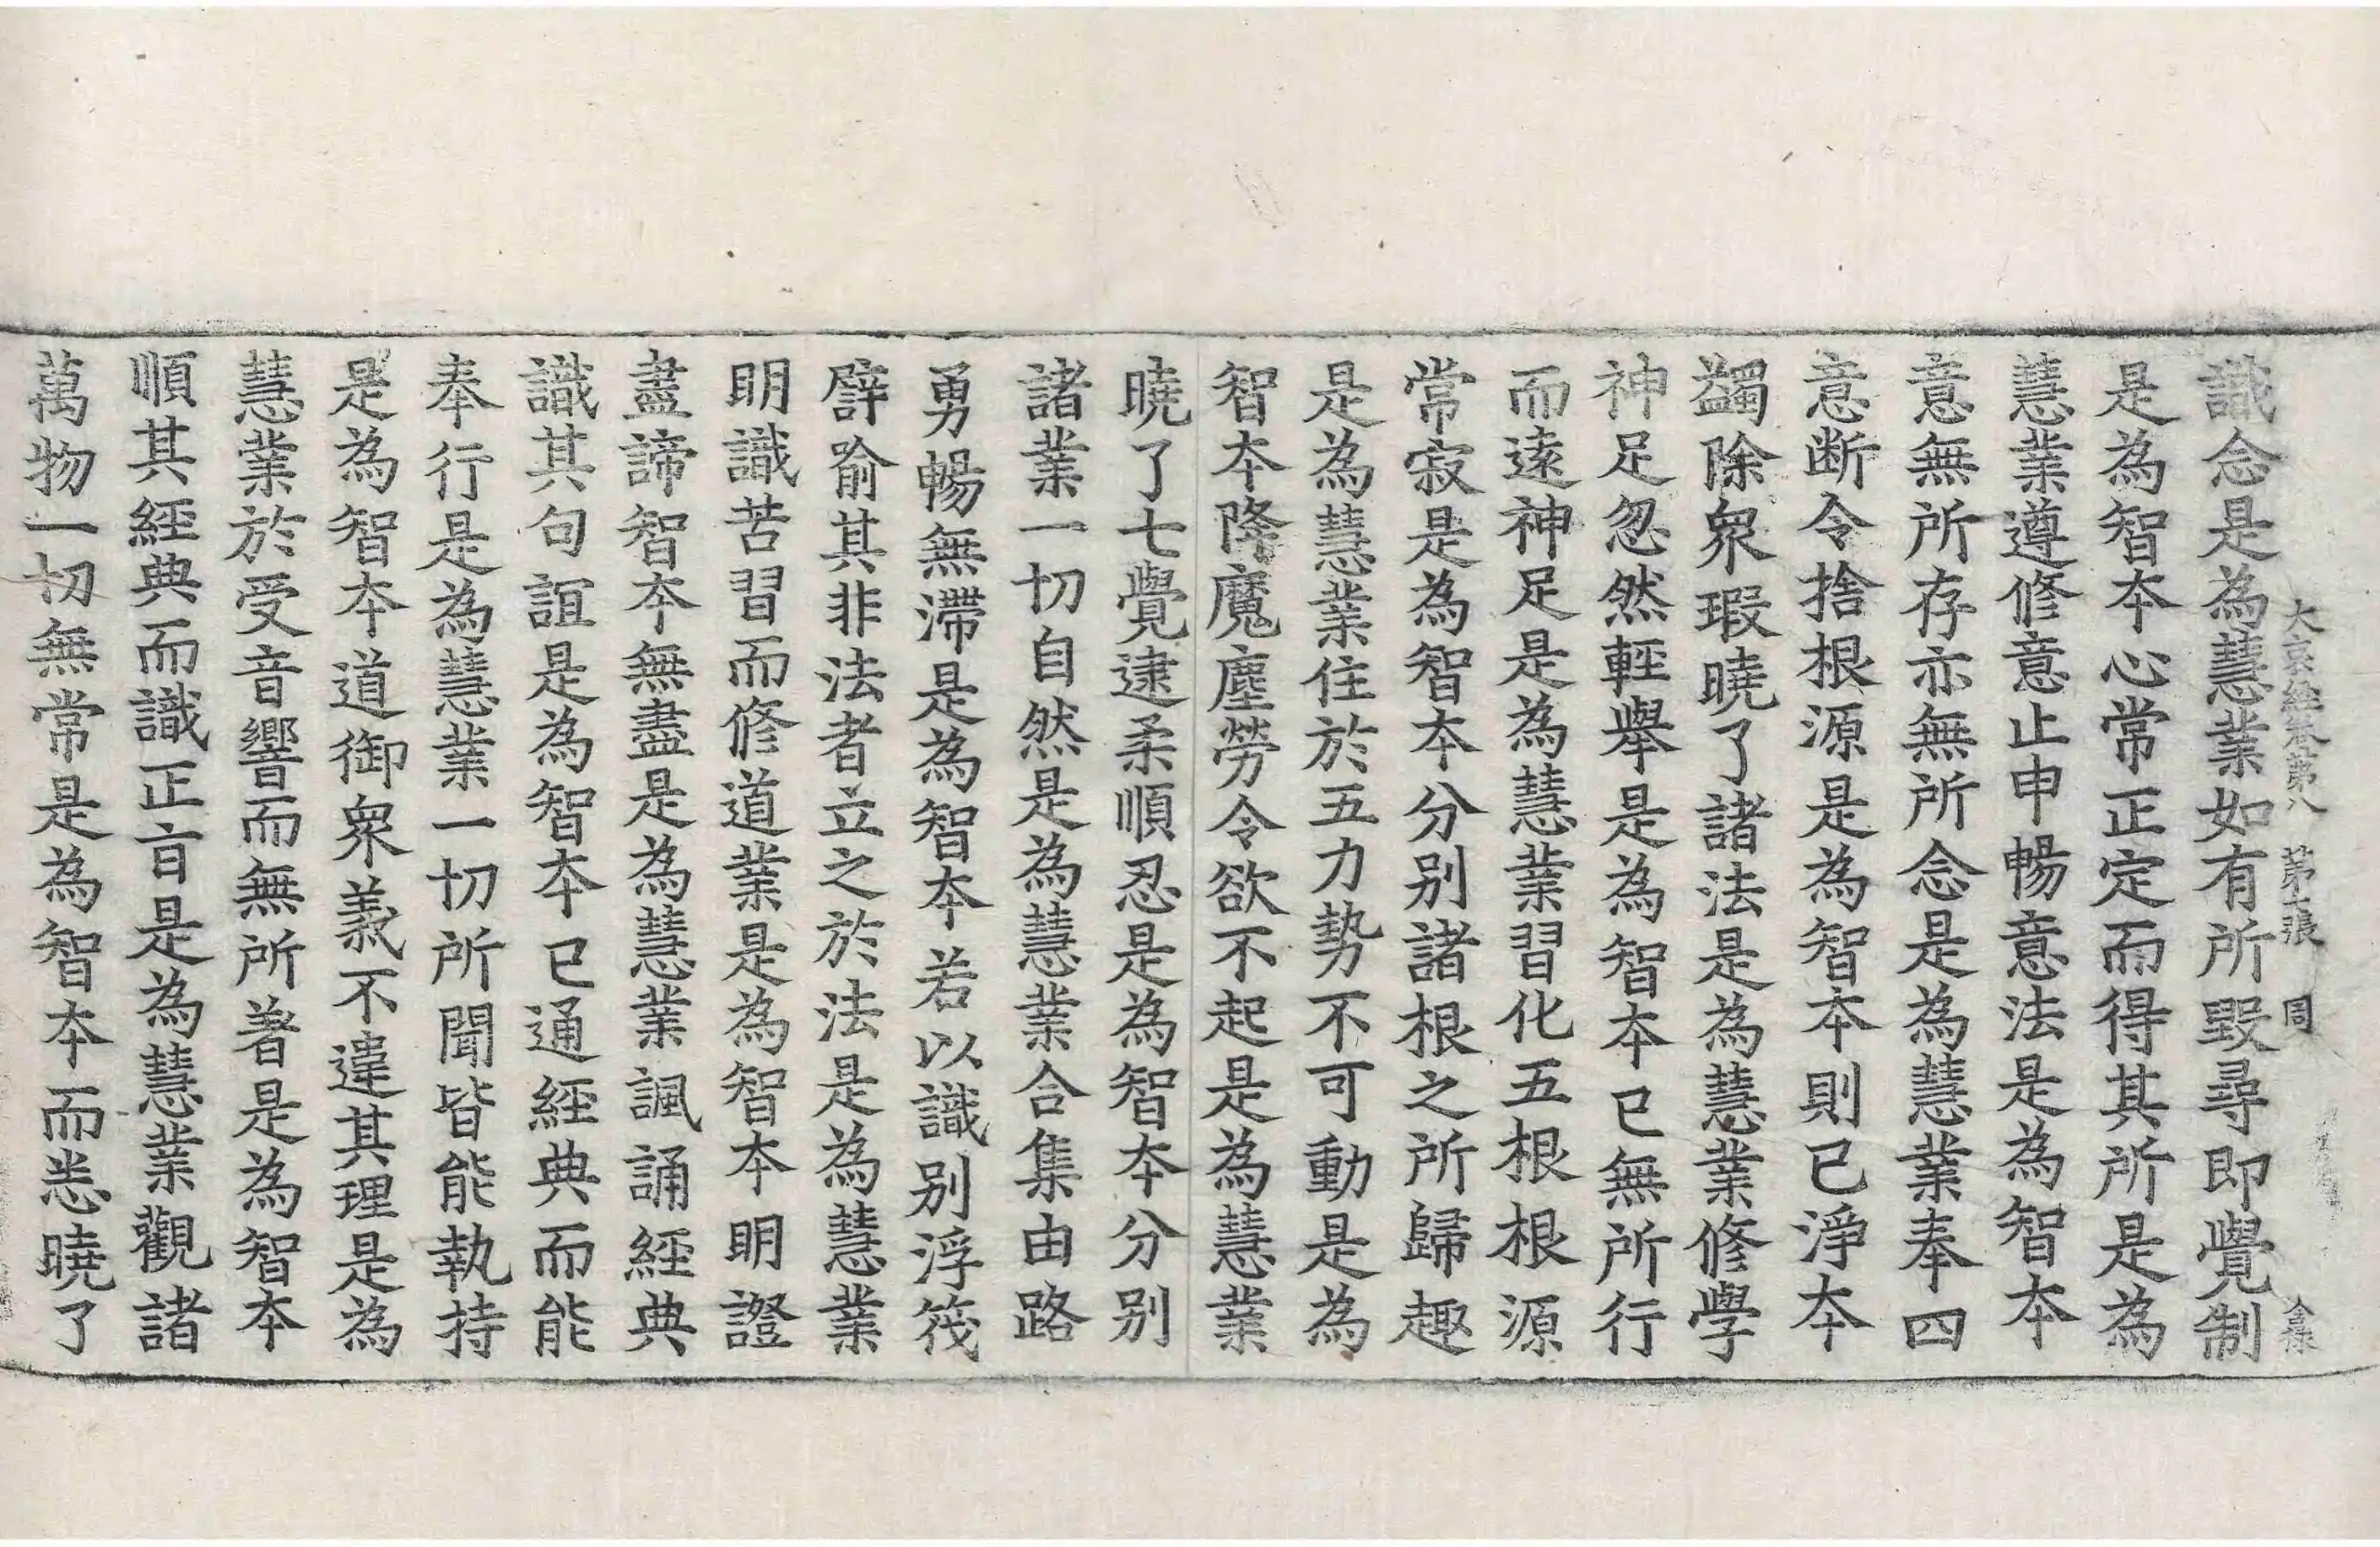 大哀經卷第八 第七張 同
識念是為慧業如有所毀尋即覺制
是為智本心常正定而得其所是為
慧業遵修意止申暢意法是為智本
意無所存亦無所念是為慧業奉四
意断令捨根源是為智本則已淨本
蠲除衆瑕曉了諸法是為慧業修學
神足忽然輕舉是為智本已無所行
而遠神足是為慧業習化五根根源
常寂是為智本分別諸根之所歸趣
是為慧業住於五力勢不可動是為
智本降魔塵勞令欲不起是為慧業
曉了七覺逮柔順忍是為智本分別
諸業一切自然是為慧業合集由路
勇暢無滯是為智本若以識別浮筏
譬喻其非法者立之於法是為慧業
明識苦習而修道業是為智本明證
盡諦智本無盡是為慧業諷誦經典
識其句誼是為智本已通經典而能
奉行是為慧業一切所聞皆能執持
是為智本道御衆義不違其理是為
慧業於受音響而無所著是為智本
順其經典而識正盲是為慧業觀諸
萬物一切無常是為智本而悉曉了